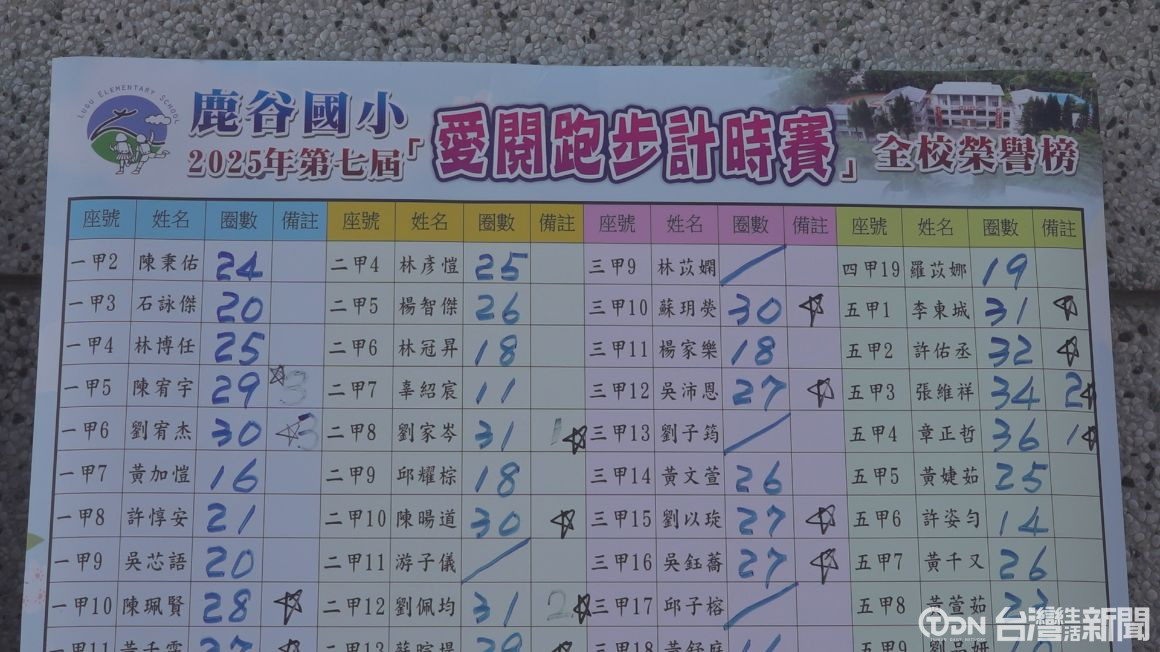 LUGU ELEMENTARY SCHOOL
鹿谷國小
2025年第七屆「愛閱跑步計時賽」全校榮譽榜
座號 姓名 圈數 備註 座號 姓名 圈數 備註 座號 姓名 圈數 備註 座號 姓名 圈數 備註
一甲2 陳秉佑 24 二甲4 林彥愷 25 三甲9 林苡嫻 / 四甲19 羅苡娜 19
一甲3 石詠傑 20 二甲5 楊智傑 26 三甲10 蘇玥熒 30 ☆ 五甲1 李東城 31 ☆
一甲4 林博任 25 二甲6 林冠昇 18 三甲11 楊家樂 18 五甲2 許佑丞 32 ☆
一甲5 陳宥宇 29 ☆3 二甲7 辜紹宸 11 三甲12 吳沛恩 27 ☆ 五甲3 張維祥 34 2☆
一甲6 劉宥杰 30 ☆3 二甲8 劉家岑 31 1☆ 三甲13 劉子筠 / 五甲4 章正哲 36 1☆
一甲7 黃加愷 16 二甲9 邱耀棕 18 三甲14 黃文萱 26 五甲5 黃婕茹 25
一甲8 許惇安 21 二甲10 陳暘道 30 ☆ 三甲15 劉以琁 27 ☆ 五甲6 許姿勻 14
一甲9 吳芯語 20 二甲11 游子儀 / 三甲16 吳鈺蕎 27 ☆ 五甲7 黃千又 26
一甲10 陳珮賢 28 ☆ 二甲12 劉佩均 31 2☆ 三甲17 邱子榕 / 五甲8 黃萱茹
一甲11 二甲13 三甲18 五甲9
TDN 台灣生活新聞